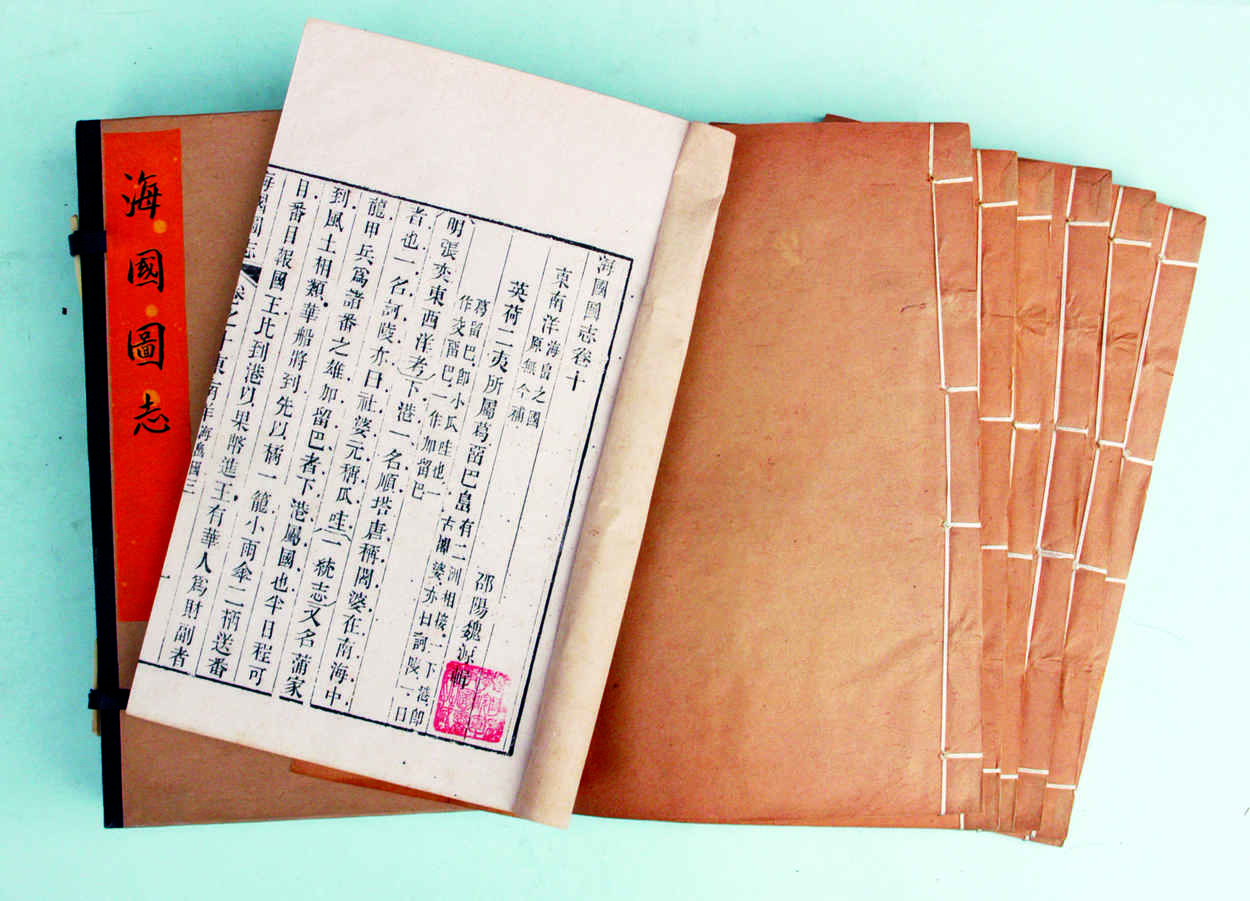 海國圖志
海國圖志卷十
東南洋海島之國原無今補
邵陽魏源輯
英荷二夷所屬葛留巴島
葛留巴卽小瓜哇也一
作交留巴一作加留巴
明張奕東西洋考下港一名順塔唐稱闍婆在南海中
者也一名訶陵亦曰社婆元稱瓜哇一統志又名蒲家
龍甲兵爲諸番之雄加留巴者下港屬國也半日程可
到風土相類華船將到先以橘一籠小雨傘二柄送番
目番目報國王比到港以果幣進王有華人爲財副者
海國圖志